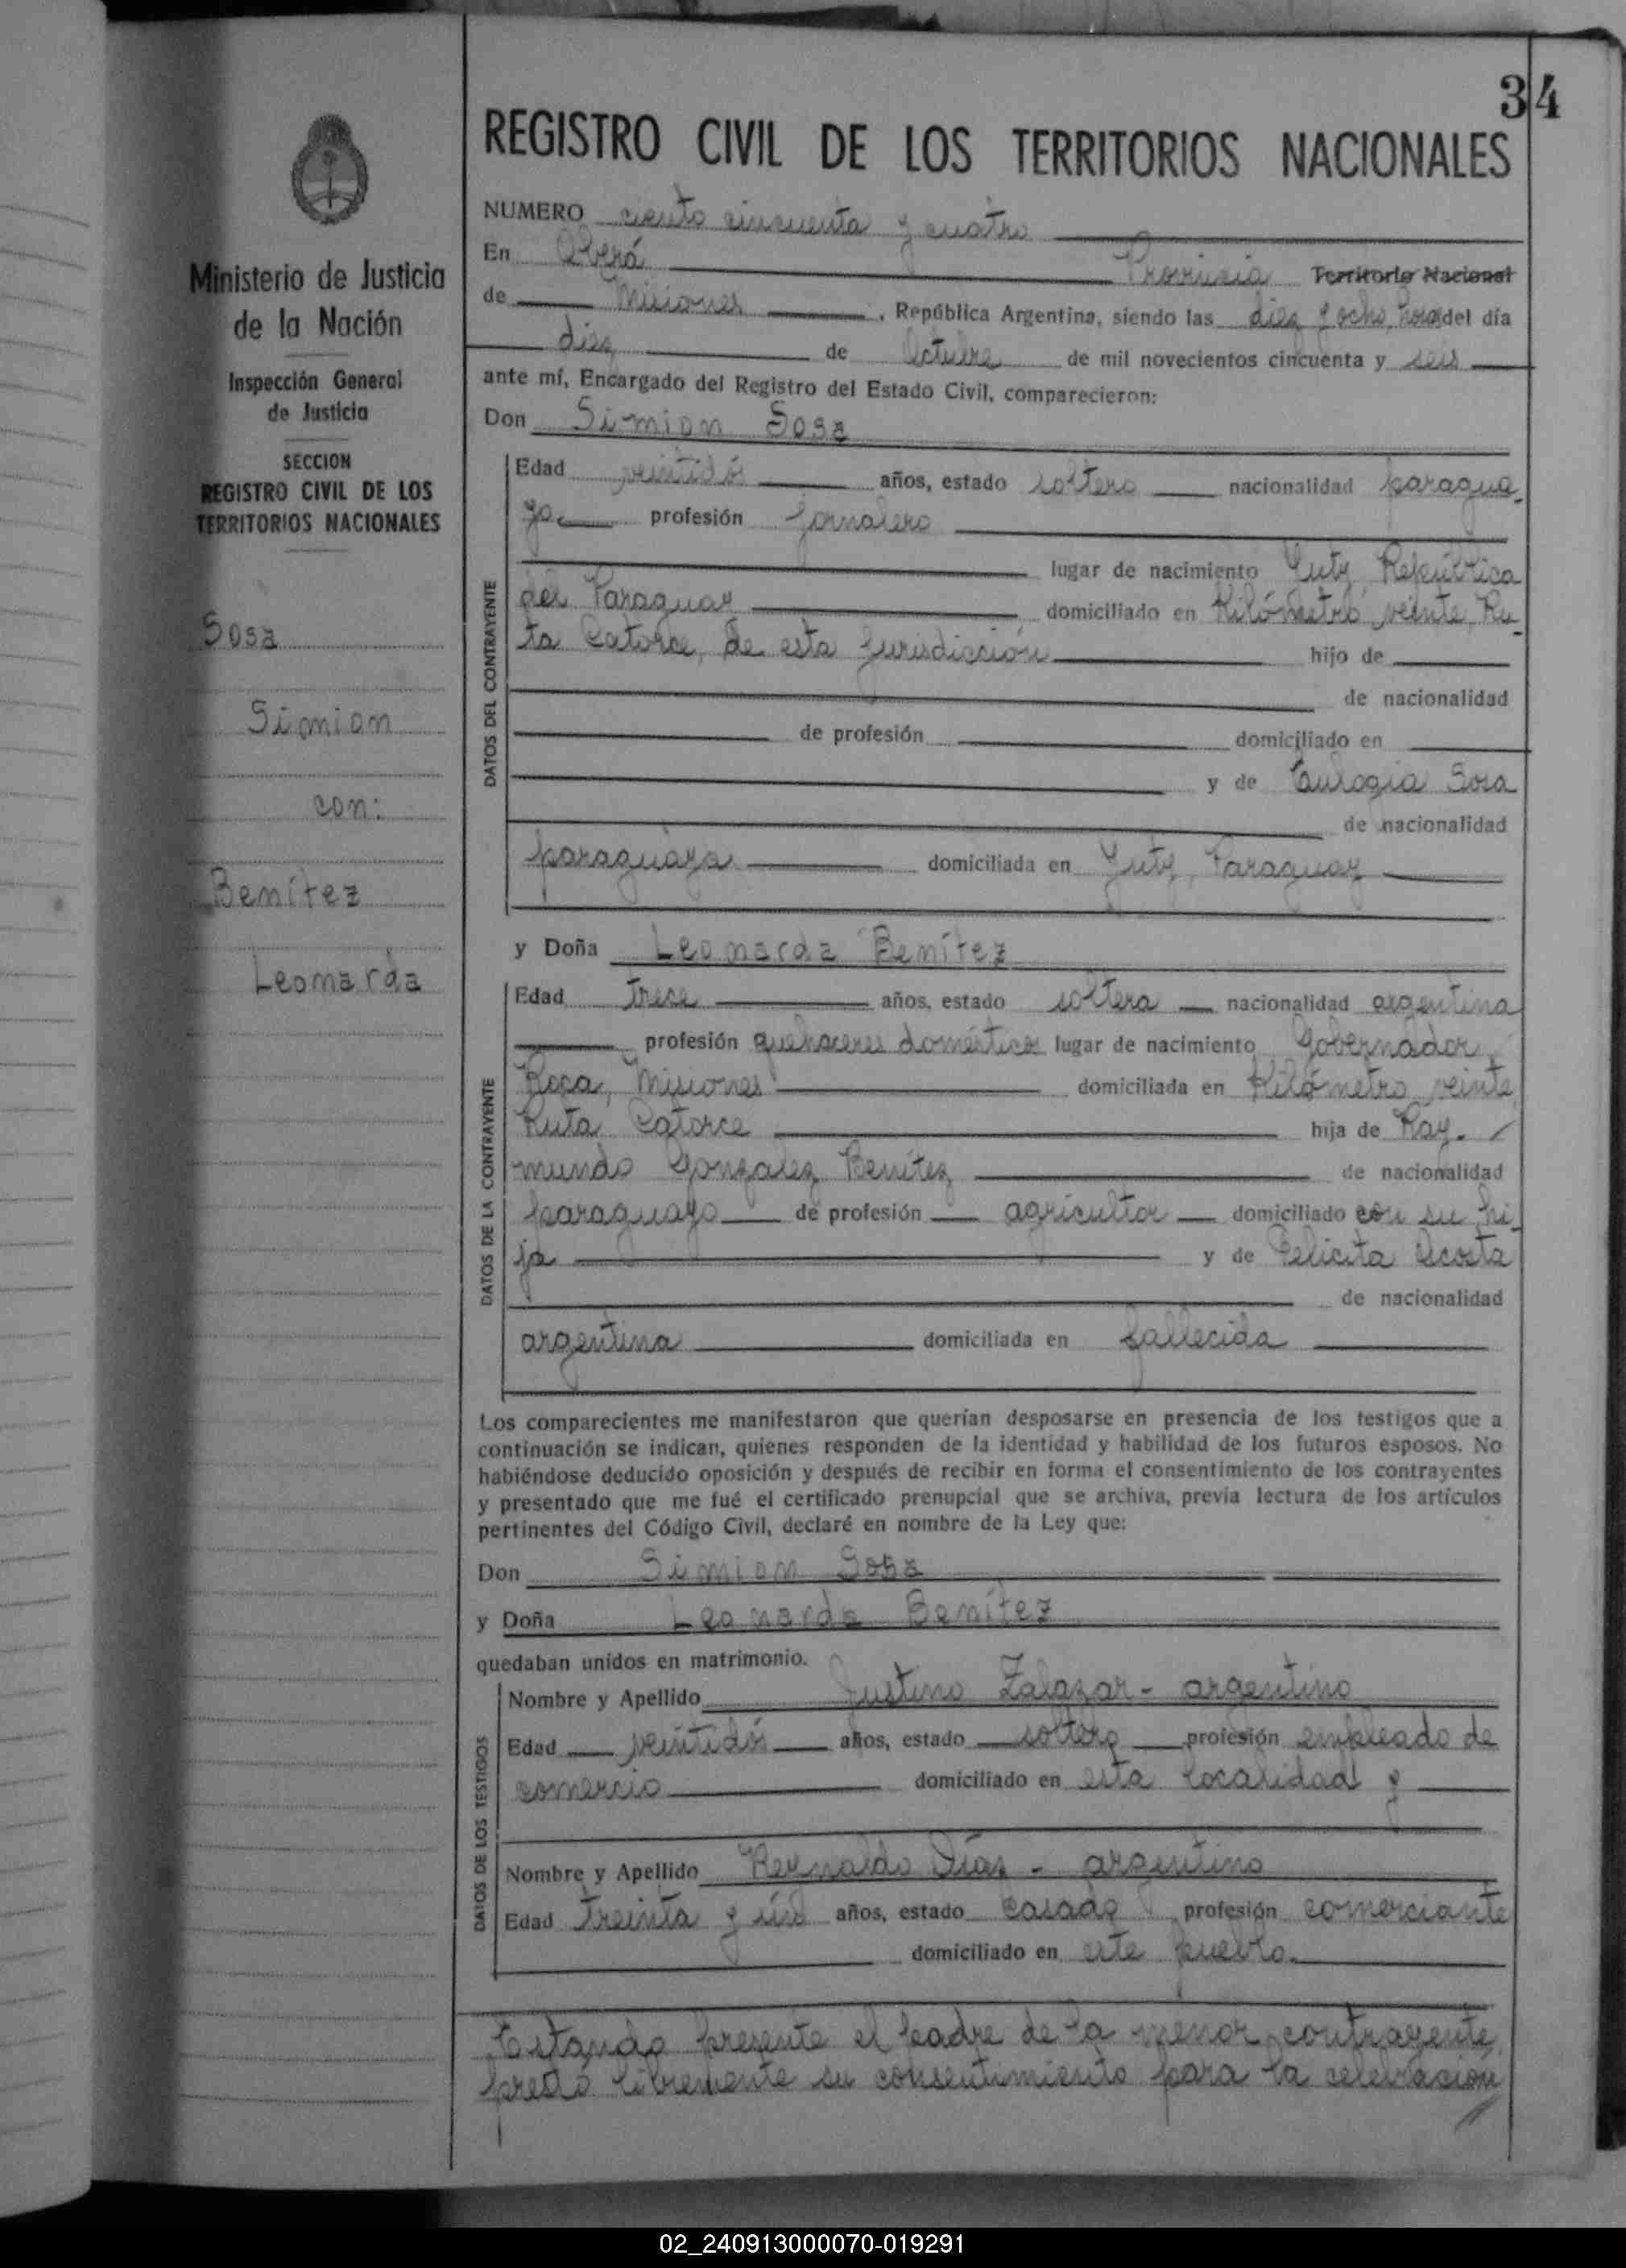 34
REGISTRO CIVIL DE LOS TERRITORIOS NACIONALES
Ministerio de Justicia
de la Nación
Inspección General
de Justicia
SECCION
REGISTRO CIVIL DE LOS
TERRITORIOS NACIONALES
Sosa
Simion
con:
Benítez
Leonarda
NUMERO ciento cincuenta y cuatro
En Oberá Provincia Territorio Nacional
de Misiones, República Argentina, siendo las diez y ocho horas del día
diez de Octubre de mil novecientos cincuenta y seis
ante mí, Encargado del Registro del Estado Civil, comparecieron:
Don Simion Sosa
DATOS DEL CONTRAYENTE
Edad veintidós años, estado soltero nacionalidad paragua-
ya profesión jornalero
lugar de nacimiento Yuty República
del Paraguay domiciliado en Kilómetro veinte, Ru-
ta Catorce, de esta jurisdicción hijo de
de nacionalidad
de profesión domiciliado en
y de Eulogia Sosa
de nacionalidad
paraguaya domiciliada en Yuty, Paraguay
y Doña Leonarda Benítez
DATOS DE LA CONTRAYENTE
Edad trece años, estado soltera nacionalidad argentina
profesión quehaceres domésticos lugar de nacimiento Gobernador
Roca, Misiones domiciliada en Kilómetro veinte,
Ruta Catorce hija de Ray-
mundo Gonzalez Benítez de nacionalidad
paraguayo de profesión agricultor domiciliado con su hi-
ja y de Felicita Acosta
de nacionalidad
argentina domiciliada en fallecida
Los comparecientes me manifestaron que querían desposarse en presencia de los testigos que a
continuación se indican, quienes responden de la identidad y habilidad de los futuros esposos. No
habiéndose deducido oposición y después de recibir en forma el consentimiento de los contrayentes
y presentado que me fué el certificado prenupcial que se archiva, previa lectura de los artículos
pertinentes del Código Civil, declaré en nombre de la Ley que:
Don Simion Sosa
y Doña Leonarda Benítez
quedaban unidos en matrimonio.
DATOS DE LOS TESTIGOS
Nombre y Apellido Justino Zalazar - argentino
Edad veintidós años, estado soltero profesión empleado de
comercio domiciliado en esta localidad y
Nombre y Apellido Reynaldo Días - argentino
Edad treinta y uno años, estado casado profesión comerciante
domiciliado en este pueblo.
Estando presente el padre de la menor contrayente,
prestó libremente su consentimiento para la celebración
02_240913000070-019291